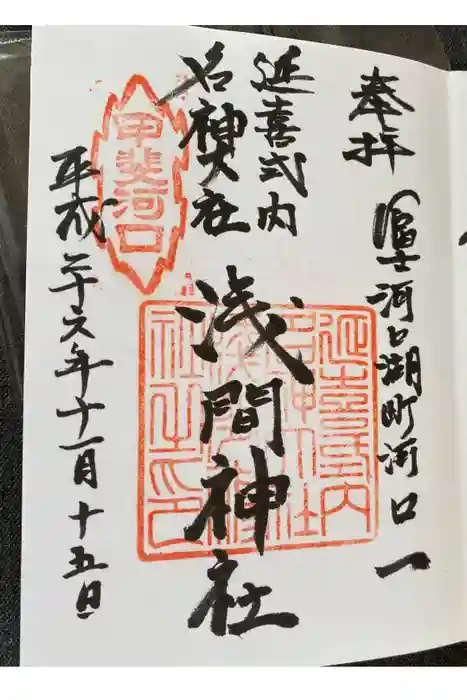 奉拝
富士河口湖町河口一
延喜式内
名神大社
浅間神社
甲斐河口
平成二十六年十一月十五日
延喜式内
名神大社
浅間神
社之印